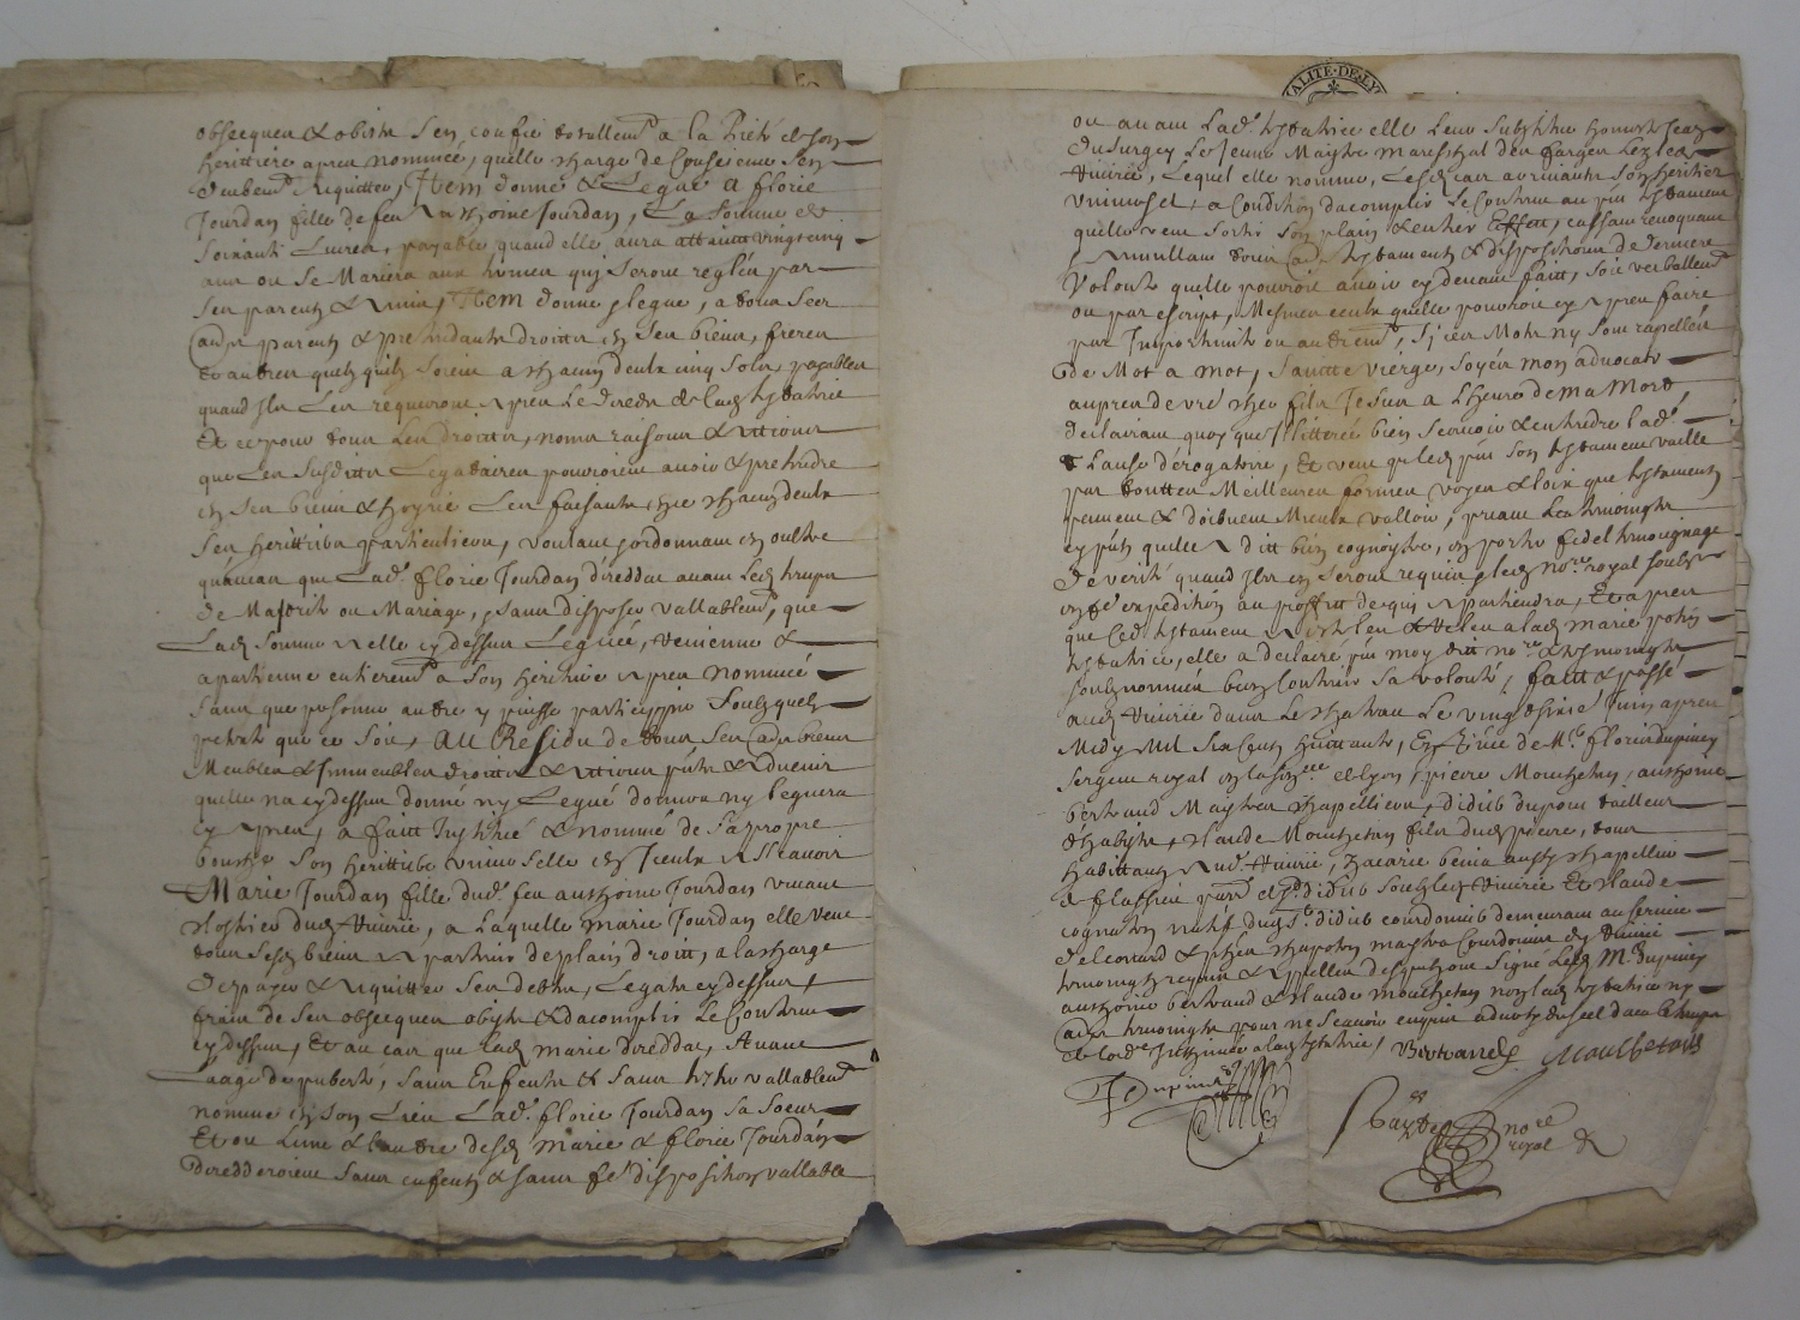 obsecques & obistz s'en confie totallemt a la Pieté de son
herittiere apres nommée, quelle charge de Conscience s'en
deubemt acquitter, Item donne & Legue a florie
Jourdan fille de feu Anthoine Jourdan, La somme de
soixante Livres, payable quand elle aura attaint vingt cinq
ans ou se Mariera aux termes quj seront reglés par
ses parents & Amis, Item donne & legue, a tous ses
aues parents & pretendants droitts en ses biens, freres
et autres quelz quilz soient a chacun deulx cinq solz, payables
quand Ilz Les requeront apres Le deceds de lade testatrice
Et ce pour tous Les droitts, noms raisons & actions
que Les susditts Legataires pourroient avoir & pretendre
en ses biens & hoyrie Les faisants et chacun deulx
ses herittiers particuliers, voulant & ordonnant en oultre
quavenant que Lade florie Jourdan decedda avant Led temps
de Majorité ou Mariage, sans disposer vallablemt, que
Lade somme a elle cy dessus Leguée, vienne &
apartienne entieremt a son heritiere apres nommée
sans que personne autre y puisse particypper soubz quelz
pretexte que ce soit, AU Residu de tous ses aues biens
Meubles & Immeubles droitts & actions pnts & advenir
quelle na cy dessus donné ny Legué donnera ny leguera
cy apres, a faitt Institué & nommé de sa propre
bouche son herittiere universelle en Iceulx a scavoir
Marie Jourdan fille dud. feu anthoine Jourdan vivant
hostier dud Yzerie, a Laquelle marie Jourdan elle veut
tous sesd biens apartenir de plain droitt, a la charge
de payer & acquitter ses debtes, Legats cy dessus,
frais de ses obsecques obistz & dacomplir Le Contenu
cy dessus, Et au cas que lade marie decedda, Avant
Laage de puberté, sans Enfents & sans tester vallablemt
nomme en son Lieu Lade. florie Jourdan sa soeur
Et ou Lune & lautre desd Marie & florie Jourdan
decedderoient sans enfents & sans fe disposition vallable
ou avant Lade. testatrice elle Leur substitue honneste Jean
Dusurgey Le Jeune Maistre mareschal des farges Lez led
Yzerie, Lequel elle nomme, Lesd cas arrivants son heritier
universel, a Condition dacomplir Le Contenu au pnt testament
quelle veut sortir son plain & entier Effett, cassant revoquant
& annullant tous aues testaments & dispositions de derniere
Volonté quelle pourroit avoir cy devant faitt, soit verballemt
ou par escript, Mesmes ceulx quelle pourroit cy apres faire
par Importunité ou autremt, Sj ces Mots ny sont rapellés
De Mot a mot, Saintte Vierge, soyés mon advocate
aupres de vre cher fils Jesus a Lheure de ma Mort,
declairant quoy que Illitterée bien scavoir & entendre lad.
Clause dérogatoire, Et veut que led pnt son testament vaille
par touttes Meilleures formes voyes & loix que testaments
peuvent & doibvent Mieulx valloir, priant Les tesmoingtz
cy pnts quelle a ditt bien cognoistre, en porter fidel tesmoignage
de verité quand Ilz en seront requis & led nore. royal soubzne
en fe expedition au proffitt de quj apartiendra, Et apres
que Led testament a esté leu & releu a lade marie
testatrice, elle a declairé pnt moy ditt nore & tesmoingtz
soubznommés bien contenir sa volonté, faitt & passé
aud Yzerie dans Le chateau Le vingt Juin apres
Midy Mil Six Cents huittante, En pnce de Me. floris Dupinay
sergent royal en la senee de Lyon, pierre Mouchetan, anthoine
bertrand Maistres chapelliers, didier dupont tailleur
dhabitz, claude Mouchetan fils dud pierre, tous
habittants Aud. Yzerie, Zacarie benia aussy chapellier
de plassieu parr de St. didier soubz led Yzerie Et claude
natif dud St. didier courdonnier demeurant au service
de leonard maistre Courdonnier dud Yzerie
tesmoingtz requis & apellés desquelz ont signé Lesd Me. Dupinay
anthoine bertrand & claude mouchetan non lade testatrice ny
aues tesmoingtz pour ne scavoir enquis
Bertrand Mouchetan
Dupinay
nore royal
ALITE·DE·LY